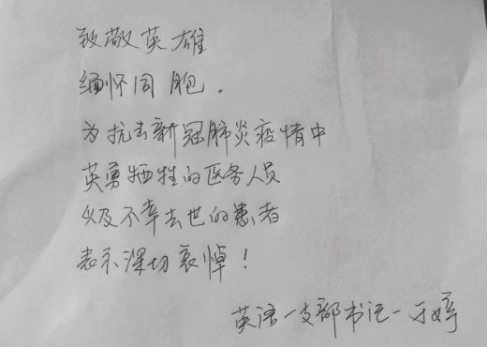 致敬英雄
缅怀同胞.
为抗击新冠肺炎疫情中
英勇牺牲的医务人员
以及不幸去世的患者
表示深切哀悼!
英语一支部书记一于婷